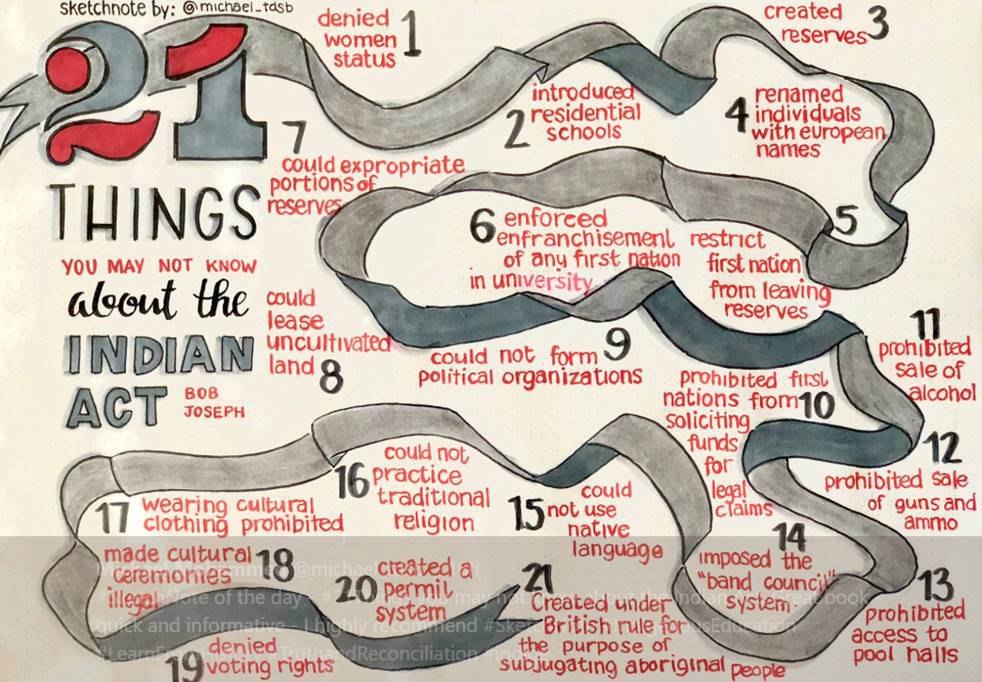 sketchnote by: @michael_tdsb
21
THINGS
YOU MAY NOT KNOW
about the
INDIAN
ACT
BOB
JOSEPH
1
denied
women
status
2
introduced
residential
schools
3
created
reserves
4
renamed
individuals
with european
names
5
restrict
first nation
from leaving
reserves
6
enforced
enfranchisement
of any first nation
in university
7
could expropriate
portions of
reserves
8
could
lease
uncultivated
land
9
could not form
political organizations
10
prohibited first
nations from
soliciting
funds
for
legal
claims
11
prohibited
sale of
alcohol
12
prohibited sale
of guns and
ammo
13
prohibited
access to
pool halls
14
imposed the
"band council"
system
15
could
not use
native
language
16
could not
practice
traditional
religion
17
wearing cultural
clothing prohibited
18
made cultural
ceremonies
illegal
19
denied
voting rights
20
created a
permit
system
21
Created under
British rule for
the purpose of
subjugating aboriginal people
@michael
Note of the day - may not about the Indian book
quick and informative - I highly recommend Education
TruthandReconciliation